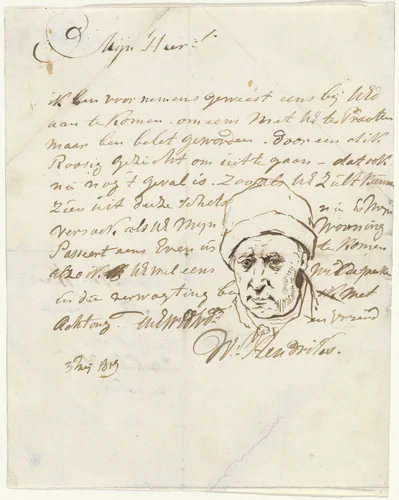 Mijn Heer
ik ben voornemens geweest eens bij UEd
aan te komen. om eens Met UE te Praatten
maar ben belet geworden. door een dik
Roosig gezicht om uit te gaan – dat ook
nu nog 't geval is. Zooals UE Zult kunnen
Zien uit deze schets nu is Mijn
versoek als UE Mijn Wooning
Passeert eens Even in te komen
ik UE wel eens
in die verwagting ben ik Met
Achting en vriend
W. Hendriks.
1819